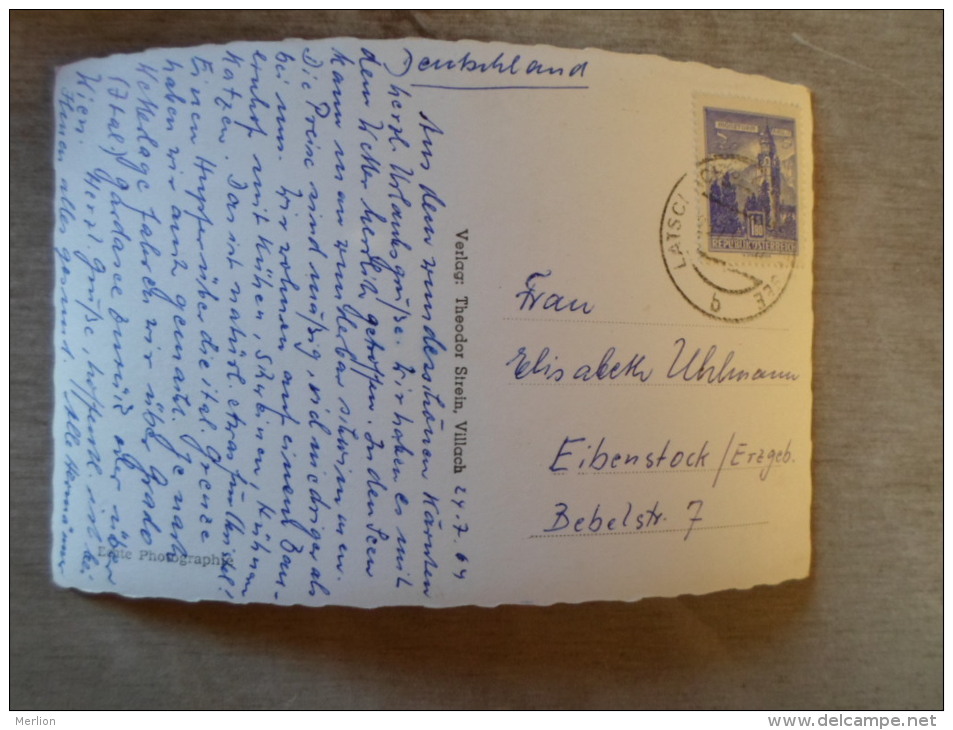 Deutschland
24.7.64
Aus dem wunderschönen Kärnten
herzl. Urlaubsgrüße. Wir haben es mit
dem Wetter herrlich getroffen. In den Seen
kann man wunderbar schwimmen.
Die Preise sind mäßig, viel niedriger als
bei uns. Wir wohnen auf einem Bau-
ernhof mit Kühen, Schweinen, Hühnern
Katzen. Das ist natürl. etwas für
Einen Hupfer über die ital. Grenze
haben wir auch gemacht. Je nach
Wetterlage fahren wir über Grado
(Ital.) Gardasee zurück oder über
Wien.
Herzl. Grüße, hoffentl. ist bei
Ihnen alles gesund.
Verlag: Theodor Strein, Villach
Echte Photographie
REPUBLIK ÖSTERREICH
LATSCHACH
b
Frau
Elisabeth Uhlmann
Eibenstock/Erzgeb.
Bebelstr. 7
Merlion